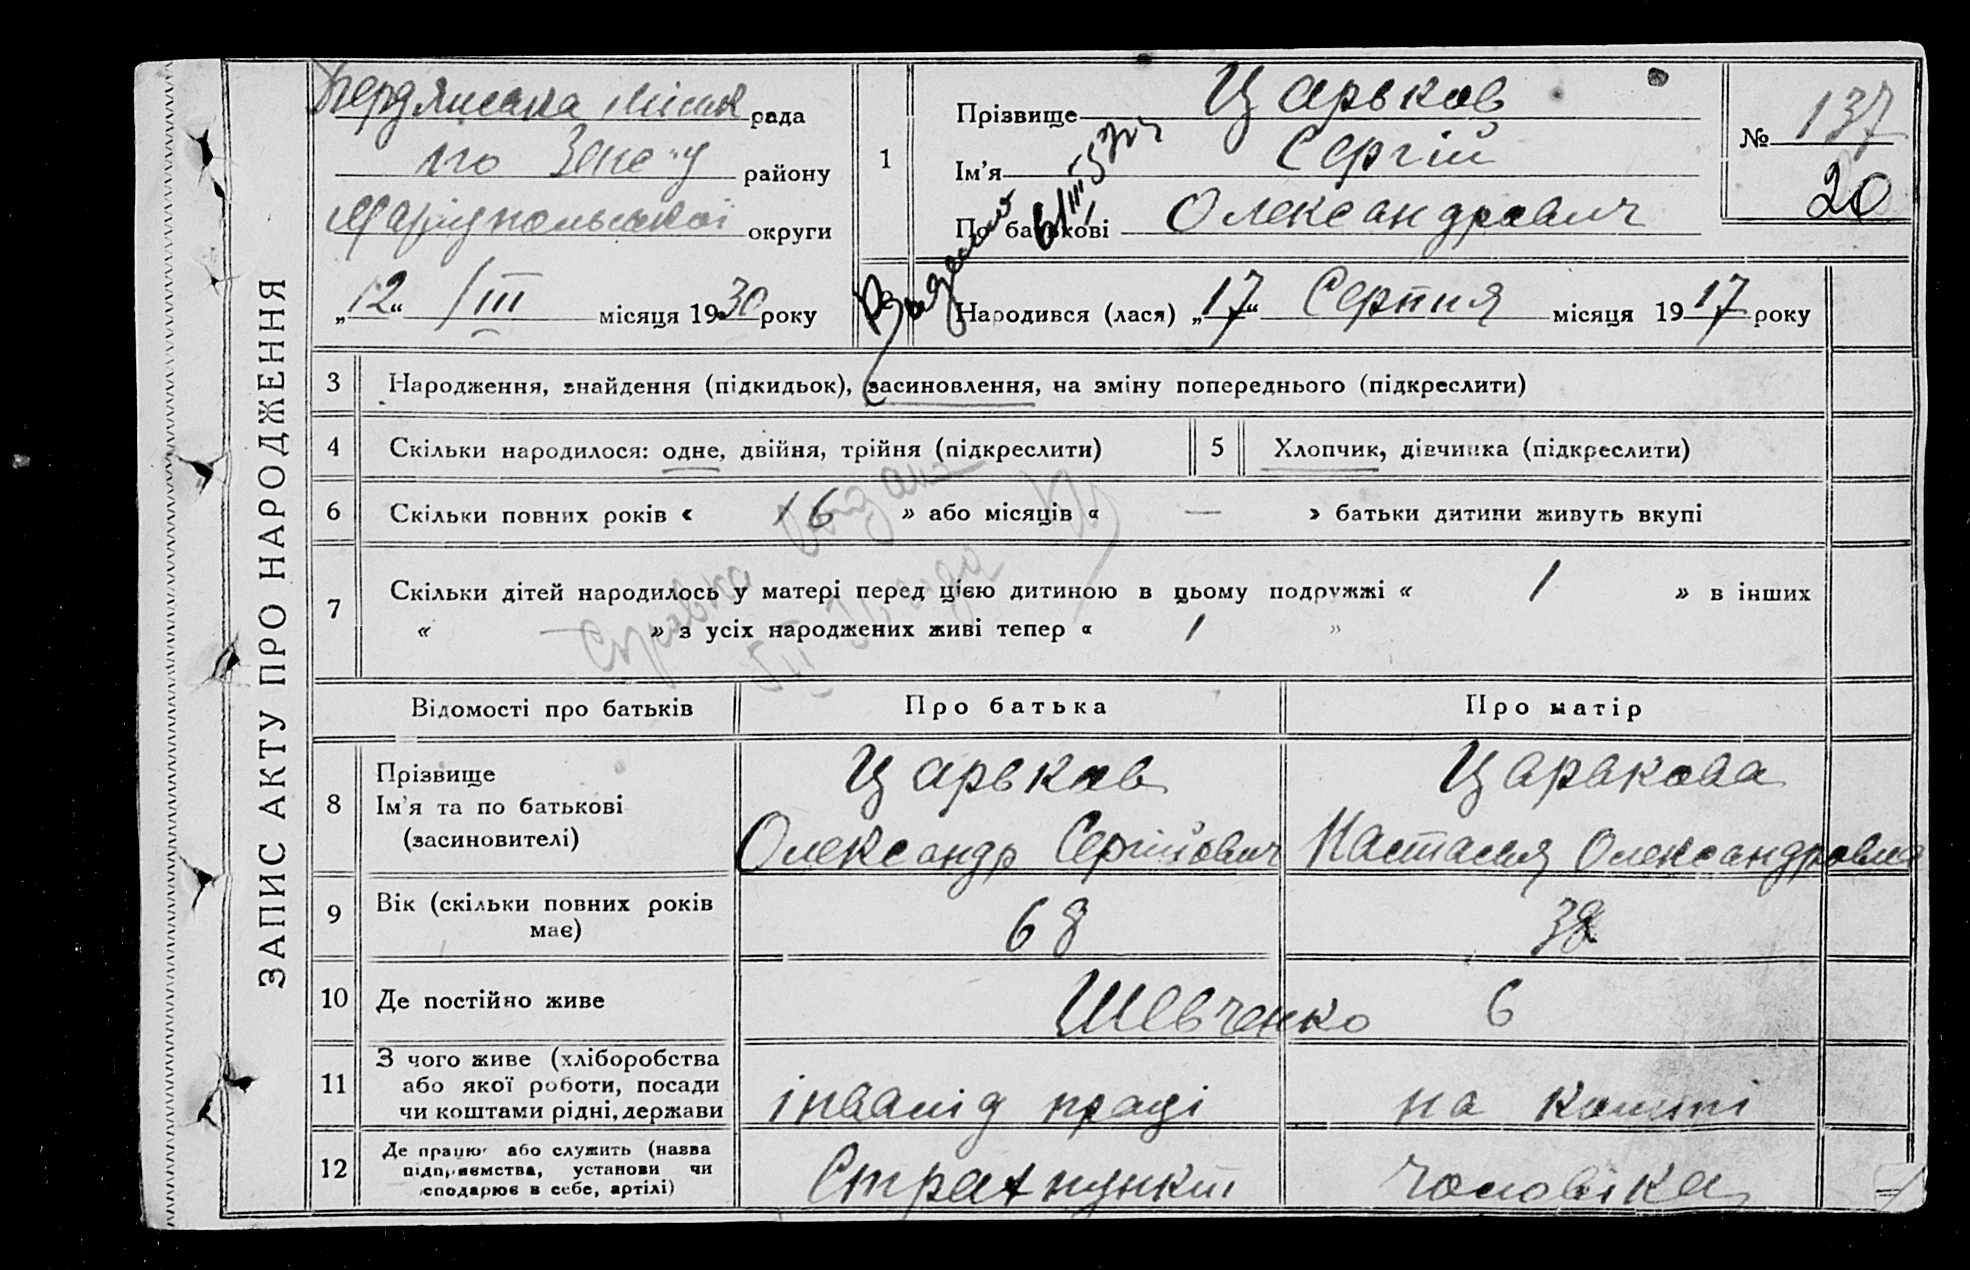 ЗАПИС АКТУ ПРО НАРОДЖЕННЯ
Бердянська міськ рада
району
Маріупольської округи
„12“ /III місяця 1930 року
1
Прізвище Царьков
Ім'я Сергій
По батькові Олександрович
№ 137
20
Народився (лася) „17“ Серпня місяця 1917 року
3 Народження, знайдення (підкидьок), засиновлення, на зміну попереднього (підкреслити)
4 Скільки народилося: одне, двійня, трійня (підкреслити)
5 Хлопчик, дівчинка (підкреслити)
6 Скільки повних років « 16 » або місяців « — » батьки дитини живуть вкупі
7 Скільки дітей народилось у матері перед цією дитиною в цьому подружжі « 1 » в інших
« » з усіх народжених живі тепер « 1 »
Справка
Відомості про батьків Про батька Про матір
8 Прізвище
Ім'я та по батькові
(засиновителі)
Царьков
Олександр Сергійович
Царькова
Настасья Олександровна
9 Вік (скільки повних років має)
68
10 Де постійно живе
Шевченко 6
11 З чого живе (хліборобства
або якої роботи, посади
чи коштами рідні, держави
інвалід праці
на кошті
12 Де працює або служить (назва
підприємства, установи чи
сподарює в себе, артілі)
Страхпункт
чоловіка